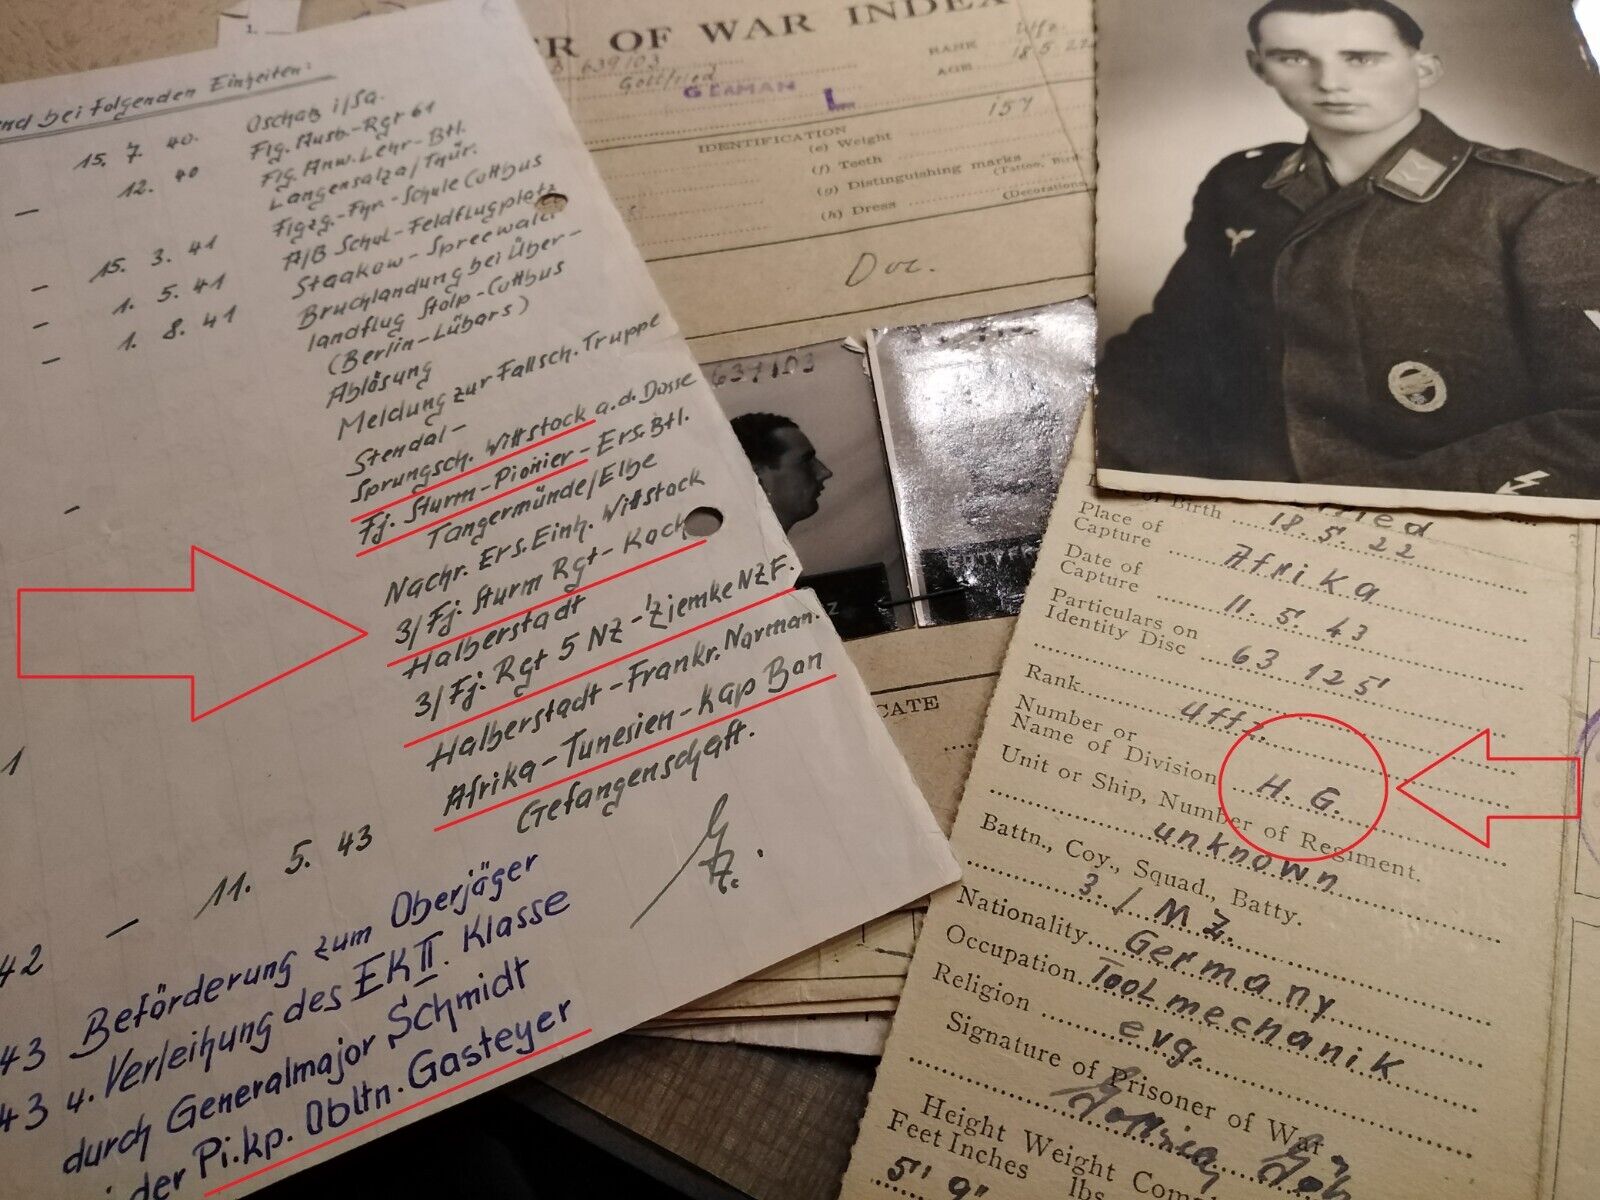 bei folgenden Einheiten:
15. 7. 40. Oschatz i/Sa.
Flg. Ausb.-Rgt 61
12. 40 Flg. Anw. Lehr-Btl.
Langensalza/Thür.
Flgzg.-Fhr-Schule Cottbus
15. 3. 41 A/B Schul-Feldflugplatz
Staakow-Spreewald
1. 5. 41 Bruchlandung bei Über-
landflug Stolp-Cottbus
1. 8. 41 (Berlin-Lübars)
Ablösung
Meldung zur Fallsch. Truppe
Stendal-
Sprungsch. Wittstock a.d. Dosse
Fj. Sturm-Pionier-Ers. Btl.
Tangermünde/Elbe
Nachr. Ers. Einh. Wittstock
3/Fj. Sturm Rgt-Koch
Halberstadt
3/Fj. Rgt 5 NZ-Ziemke NZF.
Halberstadt-Frankr. Norman.
Afrika-Tunesien-Kap Bon
11. 5. 43 Gefangenschaft.
42
43 Beförderung zum Oberjäger
43 u. Verleihung des EK II. Klasse
durch Generalmajor Schmidt
der Pi.kp. Obltn. Gasteyer
OF WAR INDEX
639103
Gottfried
RANK Uffz.
AGE 18.5.22
GERMAN L
IDENTIFICATION
(e) Weight 157
(f) Teeth
(g) Distinguishing marks
(Tattoo, Birth
(h) Dress
(Decorations
Doc.
639103
CATE
of Birth 18. 5. 22
Place of
Capture Afrika
Date of
Capture 11. 5. 43
Particulars on
Identity Disc 63 125
Rank Uffz.
Number or
Name of Division H. G.
Unit or Ship, Number of Regiment.
unknown
Battn., Coy., Squad., Batty.
3. / M. Z.
Nationality Germany
Occupation Toolmechanik
Religion evg.
Signature of Prisoner of War
Height Weight
Feet Inches lbs
5' 9"